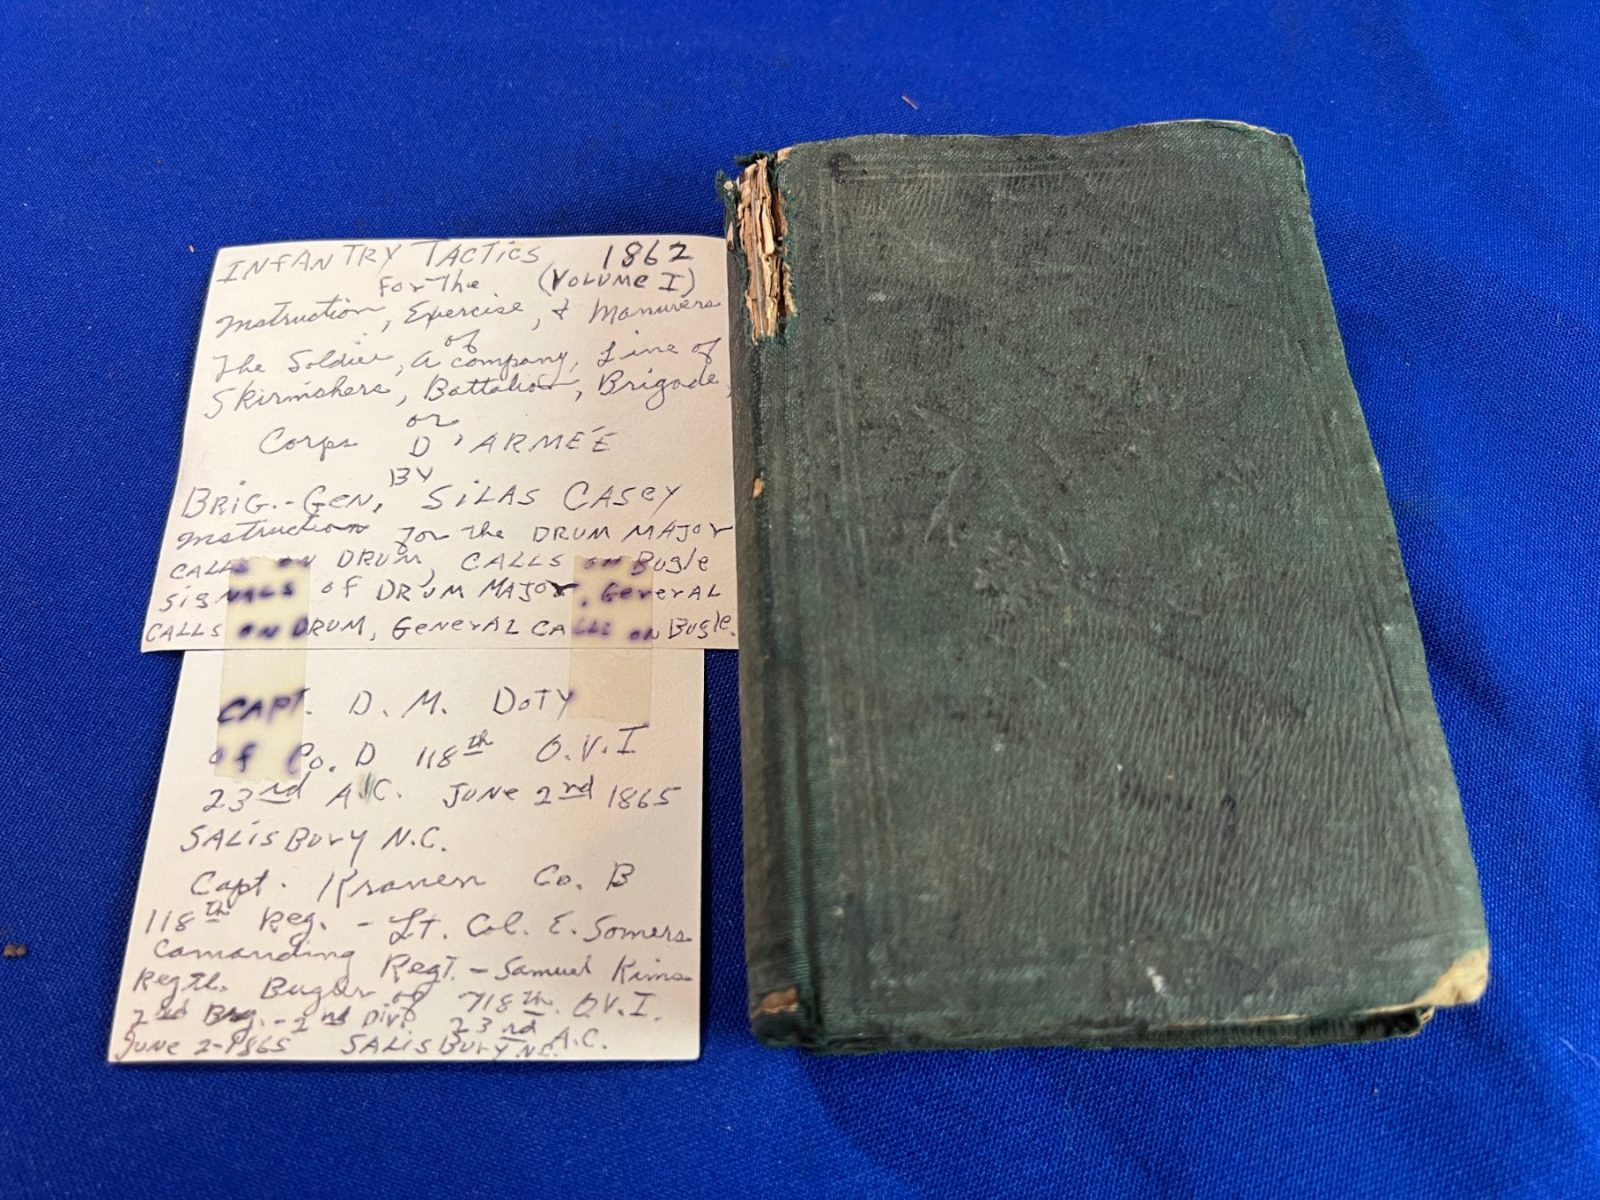 INFANTRY TACTICS 1862
For The (VOLUME I)
Instruction, Exercise, & Manuvers
of
The Soldier, A company, Line of
Skirmishers, Battalion, Brigade,
or
Corps D'ARMÉE
BY
BRIG.-GEN, SILAS CASEY
Instruction for the DRUM MAJOR
CALLS ON DRUM, CALLS ON Bugle
SIGNALS OF DRUM MAJOR, General
CALLS ON DRUM, GENERAL CALLS ON Bugle.
CAPT. D. M. DOTY
of Co. D 118th O.V.I
23rd A.C. JUNE 2nd 1865
SALISBURY N.C.
Capt. Co. B
118th Reg. - Lt. Col. E. Somers
Comanding Regt. - Samuel
Regtl. Bugler of 118th. O.V.I.
2nd Brg. - 2nd Div. 23rd A.C.
JUNE 2-1865 SALISBURY N.C.